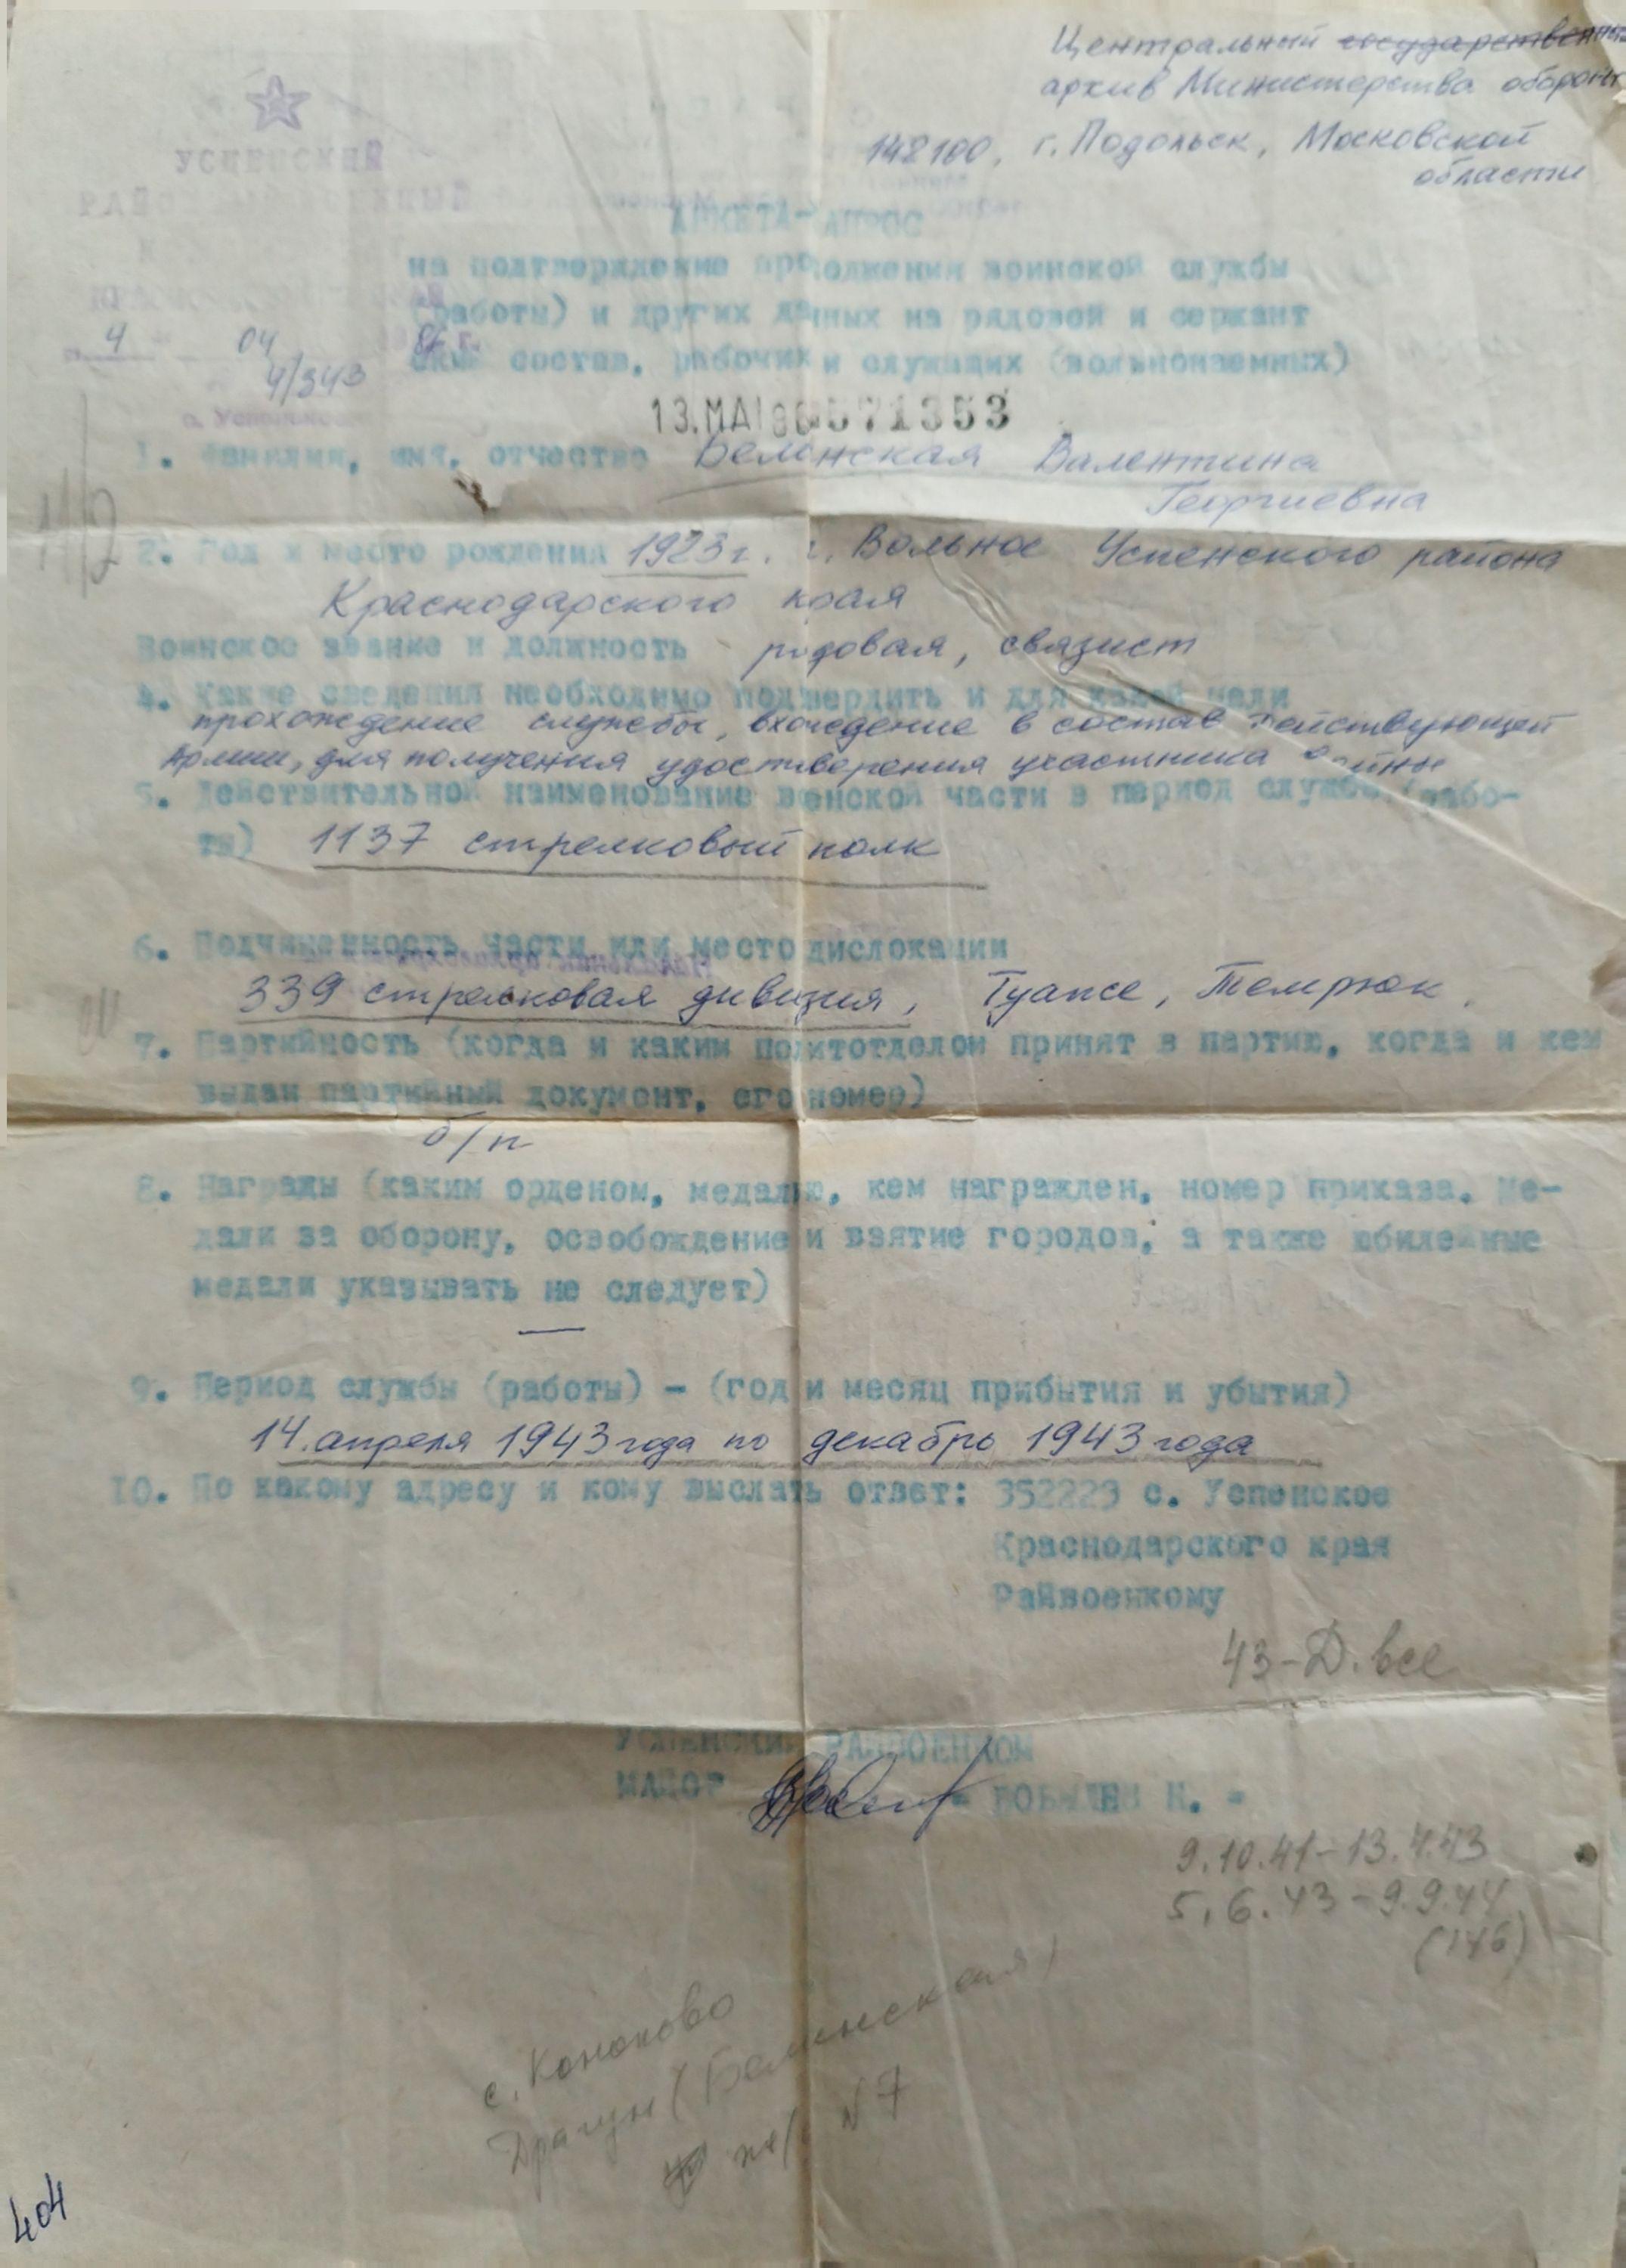 Центральный государственный
архив Министерства обороны
142100, г. Подольск, Московской
области
УСПЕНСКИЙ
АНКЕТА-ЗАПРОС
на подтверждение продолжения воинской службы
(работы) и других данных на рядовой и сержант
ский состав, рабочих и служащих (вольнонаемных)
4 04 86 г.
4/343
13.МАЙ86 071353
1. Фамилия, имя, отчество Белинская Валентина
Георгиевна
2. Год и место рождения 1923 г. с. Вольное Успенского района
Краснодарского края
Воинское звание и должность рядовая, связист
4. Какие сведения необходимо подтвердить и для какой цели
прохождение службы, вхождение в состав действующей
Армии, для получения удостоверения участника войны
5. Действительной наименование военской части в период службы (рабо-
ты) 1137 стрелковый полк
6. Подчиненность части или место дислокации
339 стрелковая дивизия, Туапсе, Темрюк.
7. Партийность (когда и каким политотделом принят в партию, когда и кем
выдан партийный документ, его номер)
б/п
8. Награды (каким орденом, медалью, кем награжден, номер приказа. Ме-
дали за оборону, освобождение и взятие городов, а также юбилейные
медали указывать не следует)
—
9. Период службы (работы) - (год и месяц прибытия и убытия)
14 апреля 1943 года по декабрь 1943 года
10. По какому адресу и кому выслать ответ: 352229 с. Успенское
Краснодарского края
Райвоенкому
43-Д. все
УСПЕНСКИЙ РАЙВОЕНКОМ
МАЙОР - БОБЫЛЕВ Н. -
9.10.41-13.4.43
5.6.43-9.9.44
(146)
с. Коноково
Драгун (Белинская)
№ 7
404